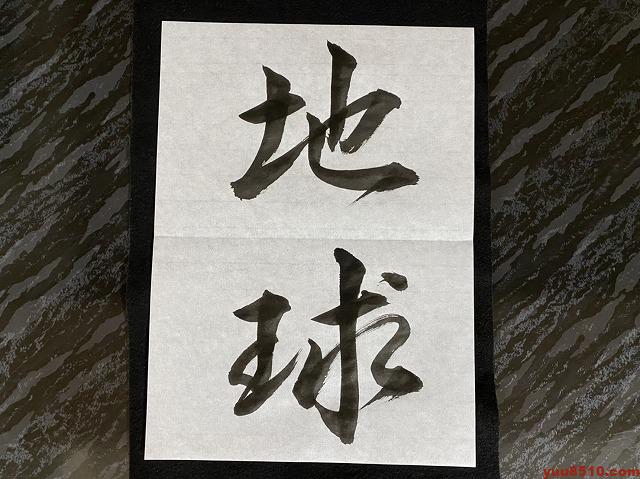 地
球
yuu8510.com